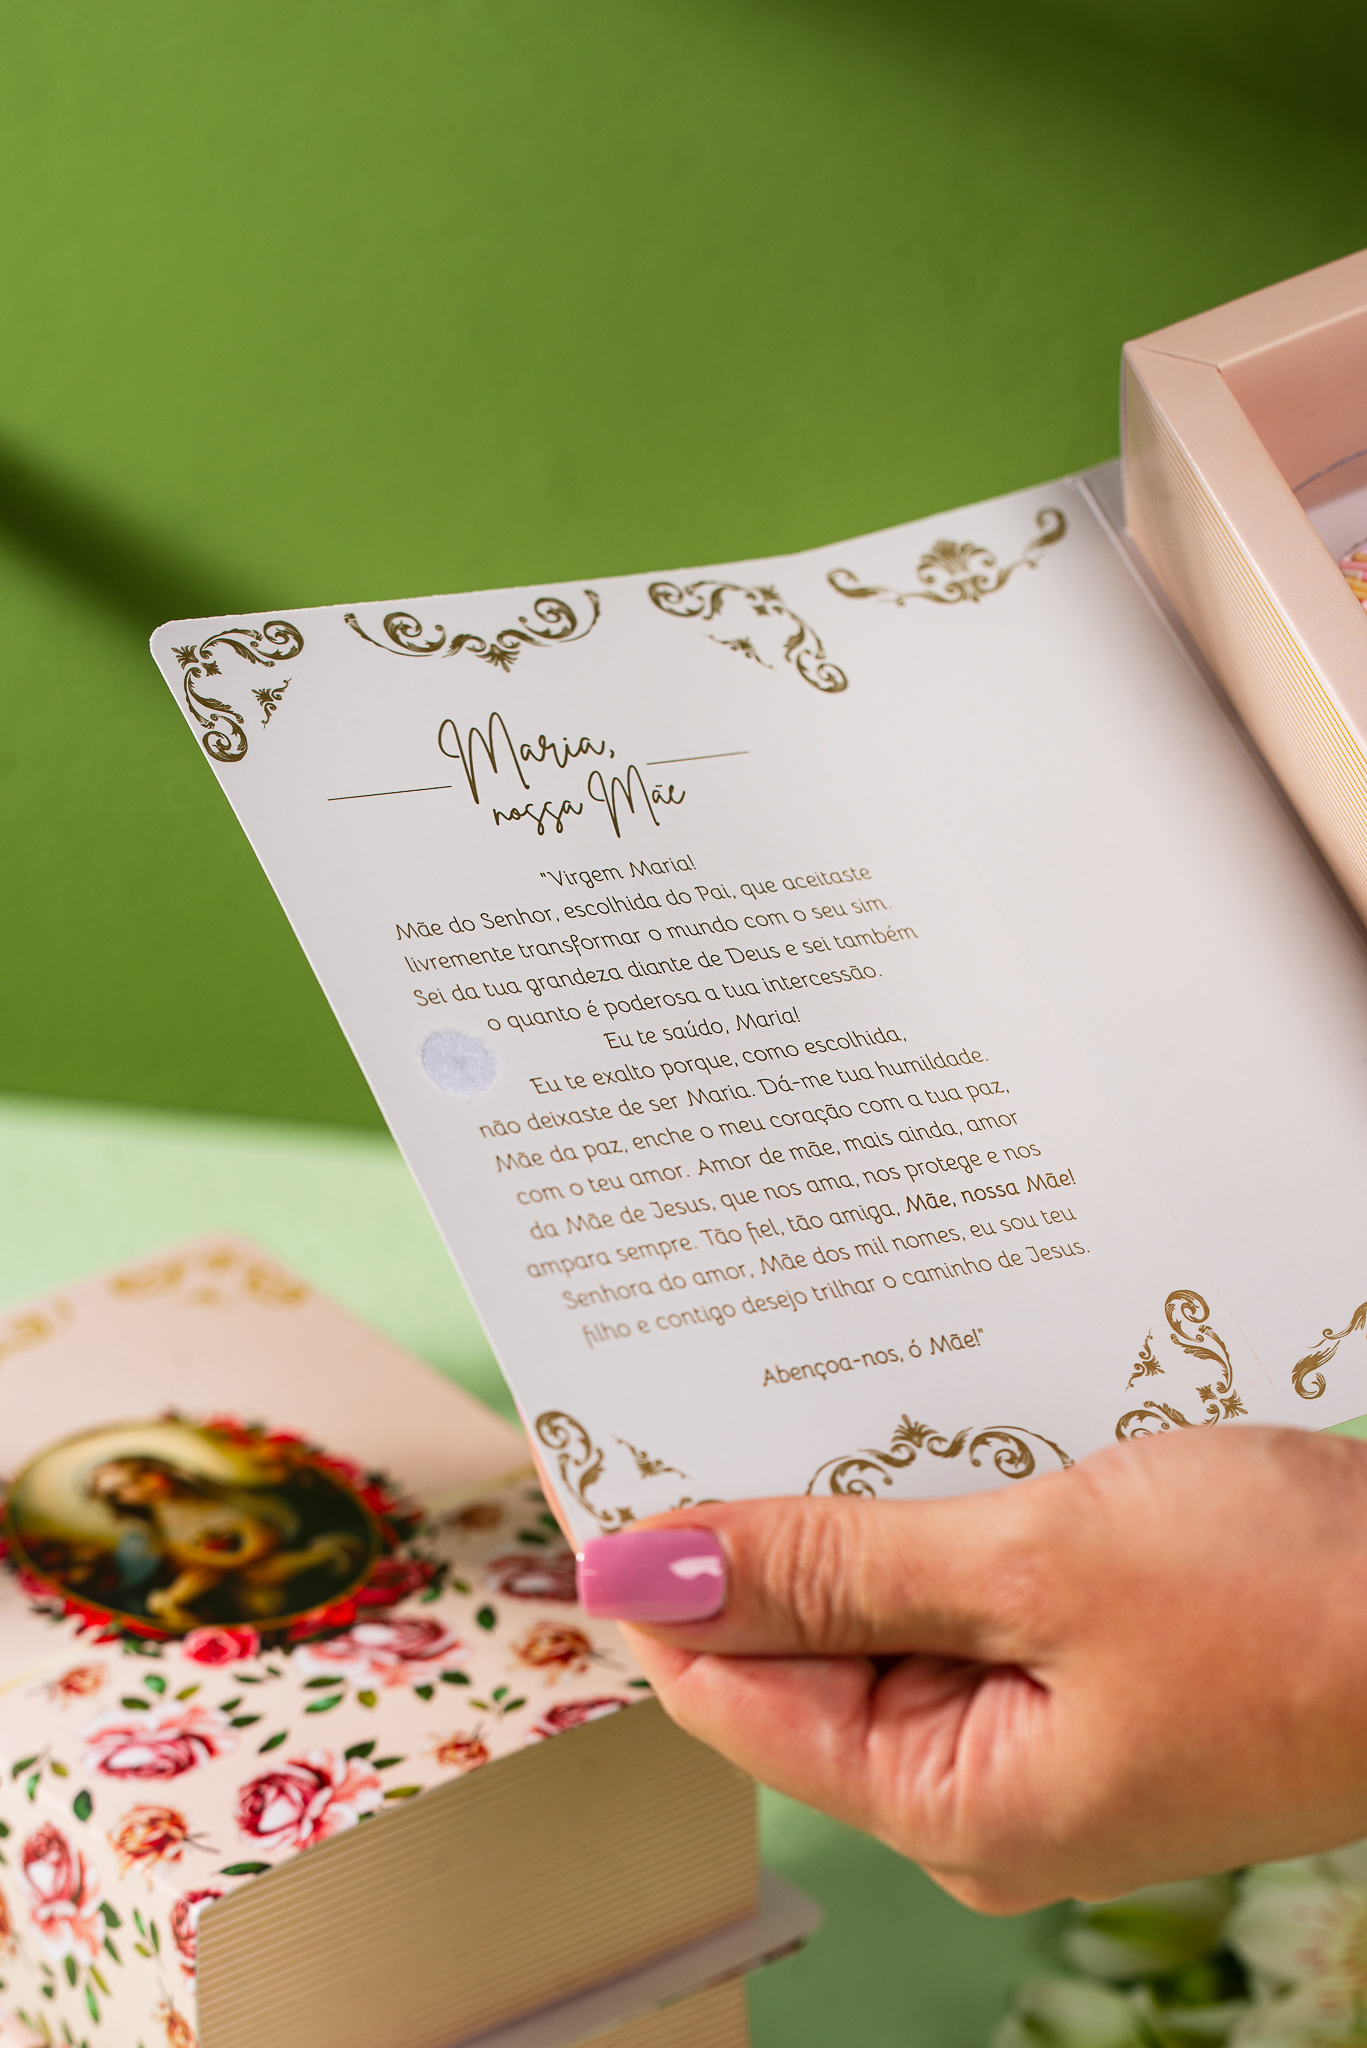 Maria,
nossa Mãe
"Virgem Maria!
Mãe do Senhor, escolhida do Pai, que aceitaste
livremente transformar o mundo com o seu sim.
Sei da tua grandeza diante de Deus e sei também
o quanto é poderosa a tua intercessão.
Eu te saúdo, Maria!
Eu te exalto porque, como escolhida,
não deixaste de ser Maria. Dá-me tua humildade.
Mãe da paz, enche o meu coração com a tua paz,
com o teu amor. Amor de mãe, mais ainda, amor
da Mãe de Jesus, que nos ama, nos protege e nos
ampara sempre. Tão fiel, tão amiga, Mãe, nossa Mãe!
Senhora do amor, Mãe dos mil nomes, eu sou teu
filho e contigo desejo trilhar o caminho de Jesus.
Abençoa-nos, ó Mãe!"